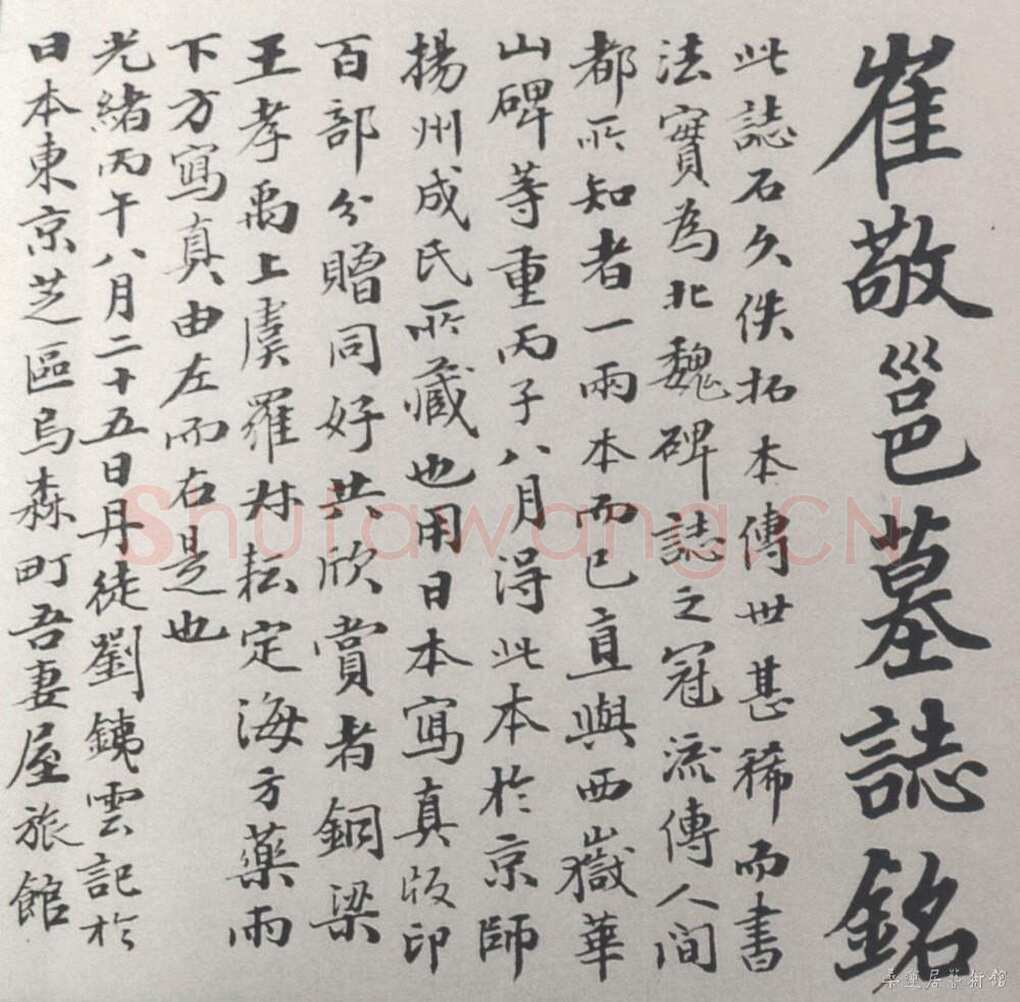 崔敬邕墓誌銘
此誌石久佚拓本傳世甚稀而書
法實為北魏碑誌之冠流傳人間
都所知者一兩本而已直與西嶽華
山碑等重丙子八月得此本於京師
揚州成氏所藏也用日本寫真版印
百部分贈同好共欣賞者銅梁
王孝禹上虞羅叔耘定海方藥雨
下方寫真由左而右是也
光緒丙午八月二十五日丹徒劉銕雲記於
日本東京芝區烏森町吾妻屋旅館
Shufawang.CN
桑蓮居藝術館